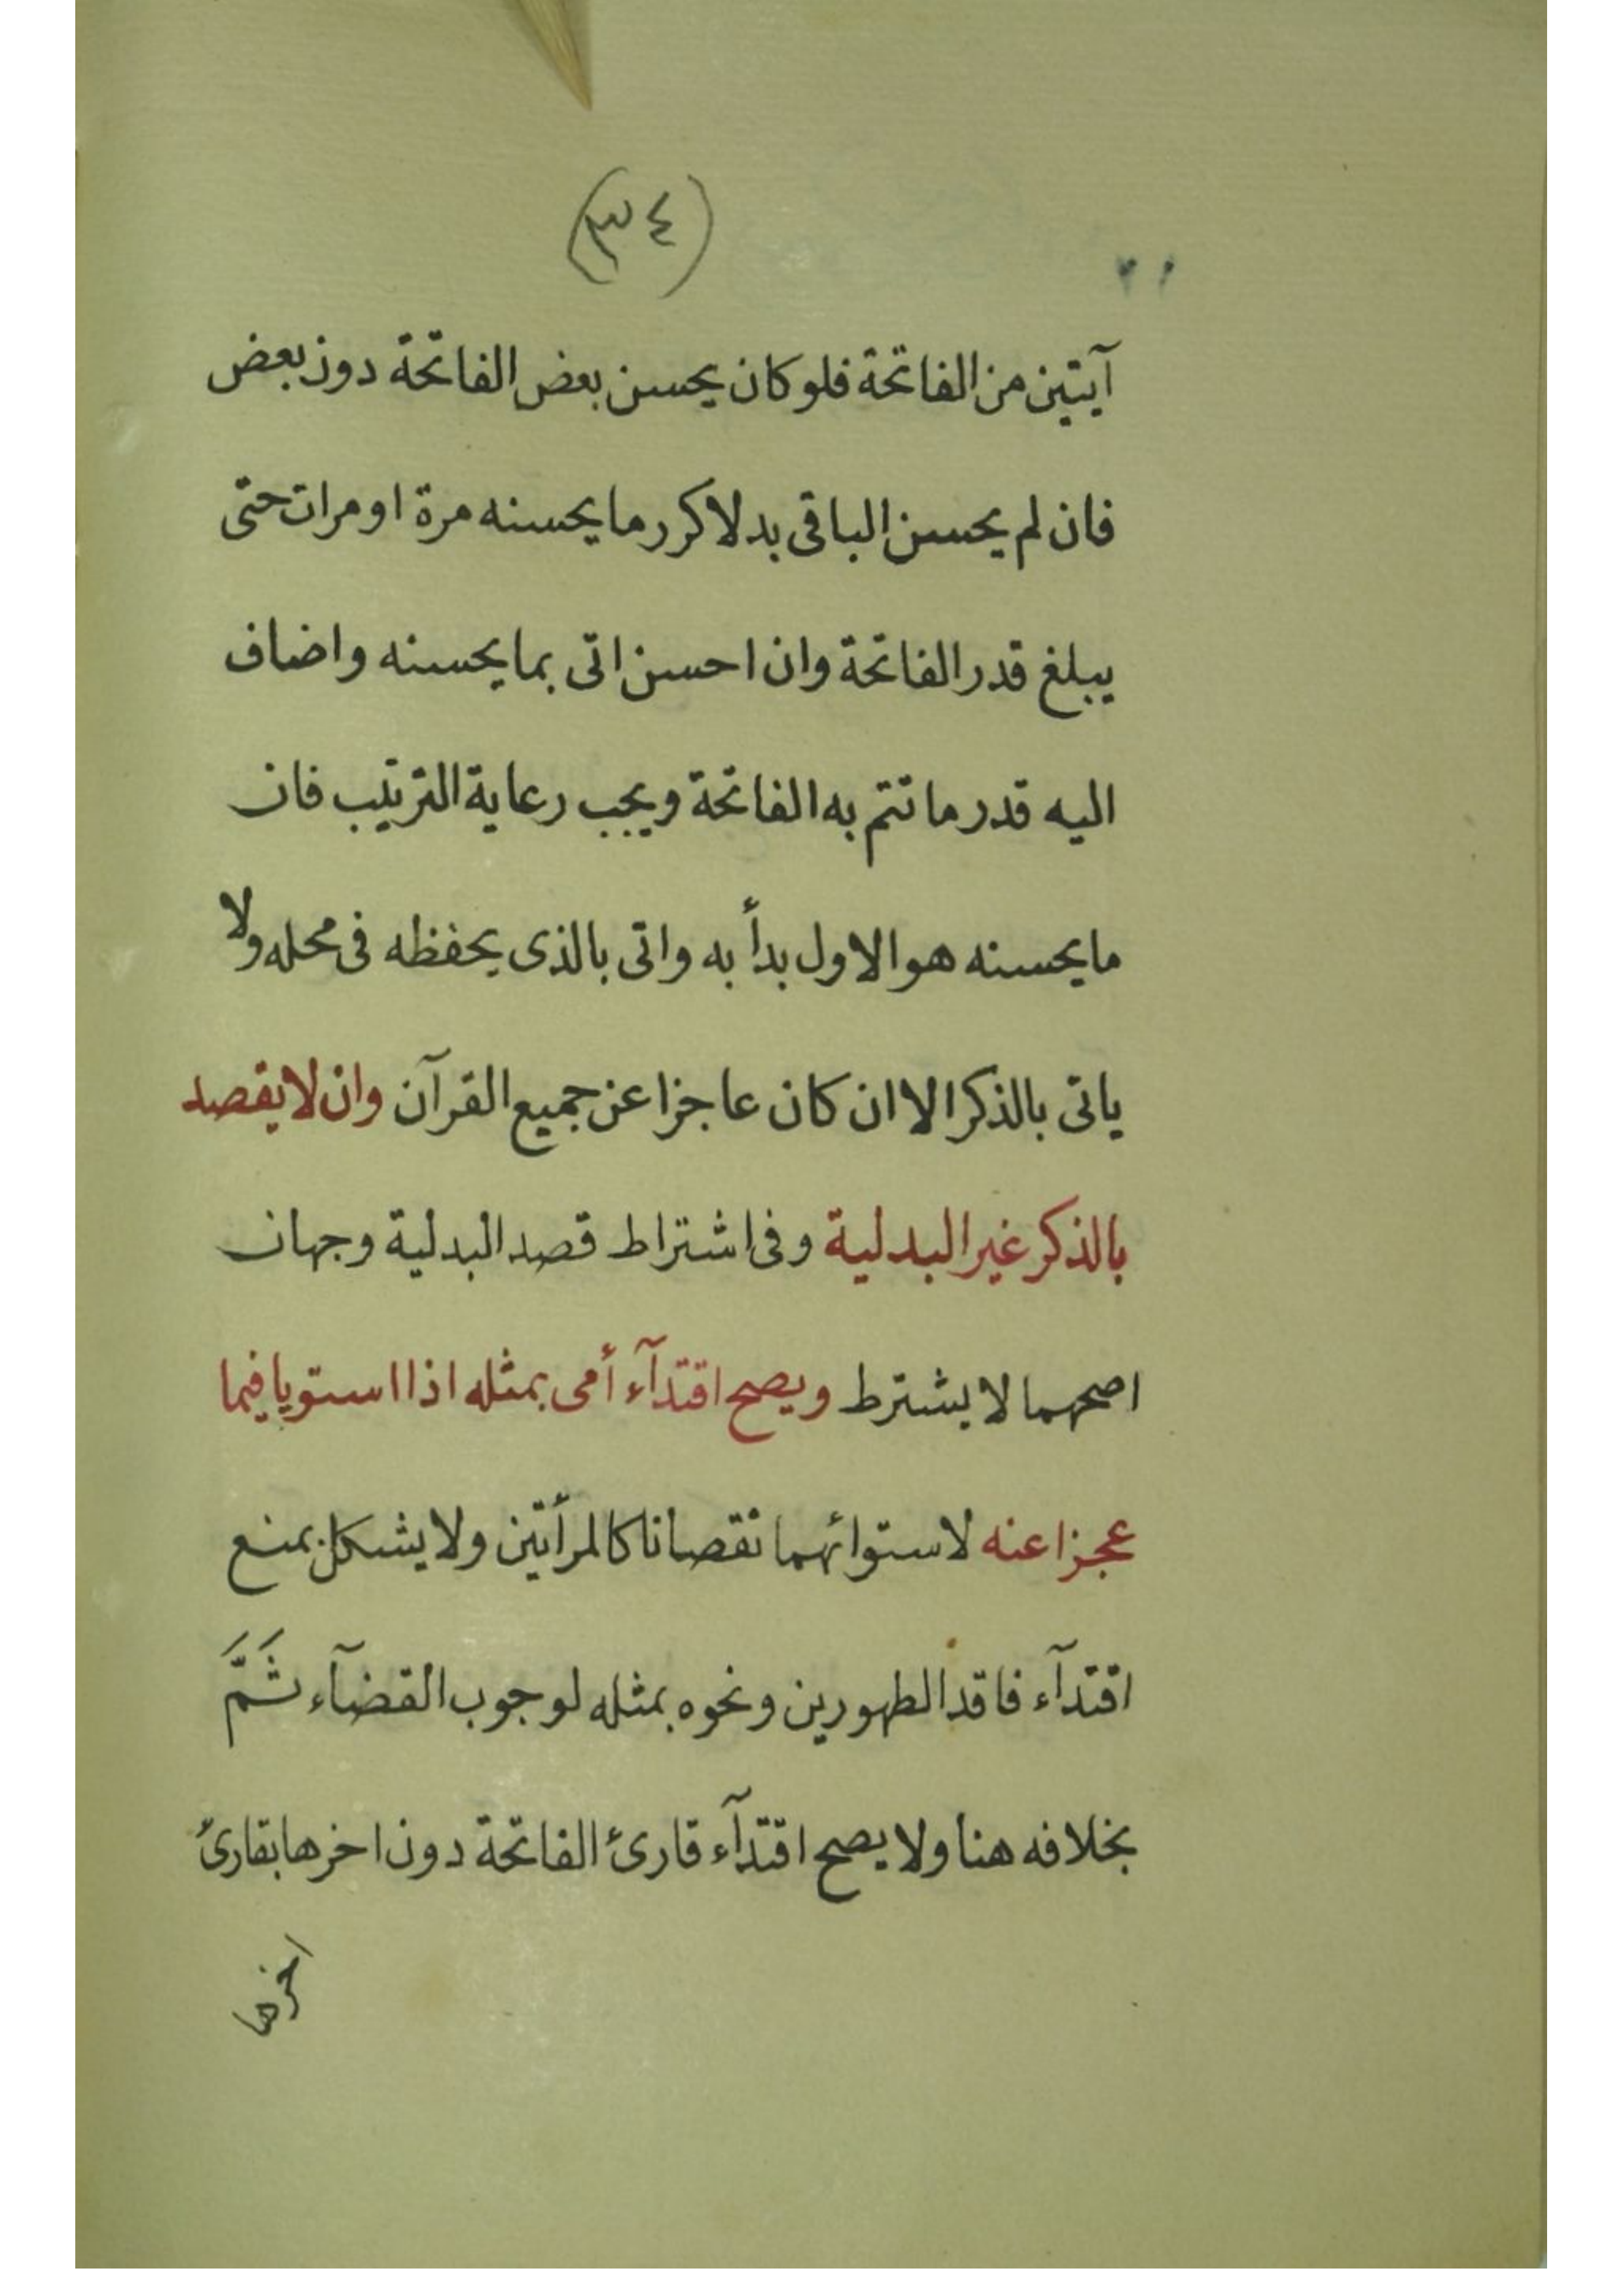 (٣٤)
آيتين من الفاتحة فلو كان يحسن بعض الفاتحة دون بعض
فان لم يحسن الباقى بدلا كرر ما يحسنه مرة او مرات حتى
يبلغ قدر الفاتحة وان احسن اتى بما يحسنه واضاف
اليه قدر ما تتم به الفاتحة ويجب رعاية الترتيب فان
ما يحسنه هو الاول بدأ به واتى بالذى يحفظه فى محله ولا
ياتى بالذكر الا ان كان عاجزا عن جميع القرآن وان لا يقصد
بالذكر غير البدلية وفى اشتراط قصد البدلية وجهان
اصحهما لا يشترط ويصح اقتدآء أمى بمثله اذا استويا فيما
عجزا عنه لاستوائهما نقصانا كالمرأتين ولا يشكل بمنع
اقتدآء فاقد الطهورين ونحوه بمثله لوجوب القضآء ثَمَّ
بخلافه هنا ولا يصح اقتدآء قارئ الفاتحة دون اخرها بقارئ
اخرها